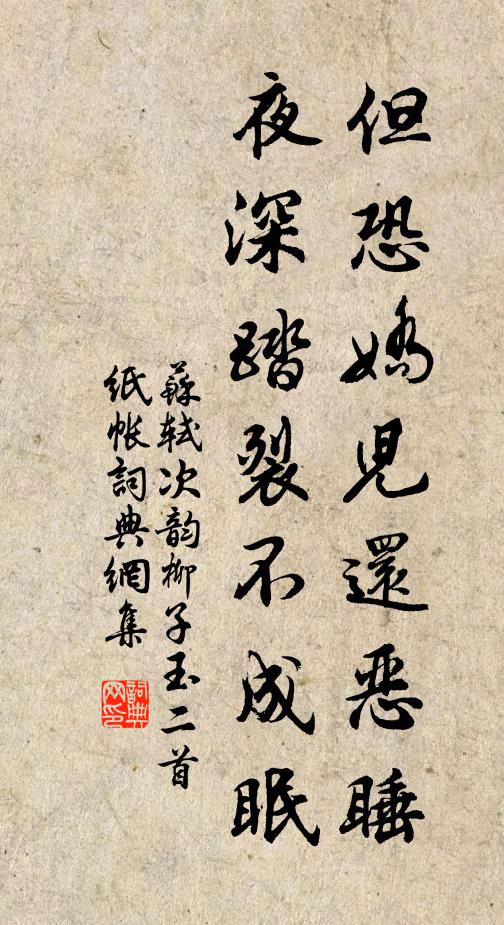 但恐嬌兒還惡睡
夜深踏裂不成眠
蘇軾次韵柳子玉二首
紙帐詞典網集
詞典网印